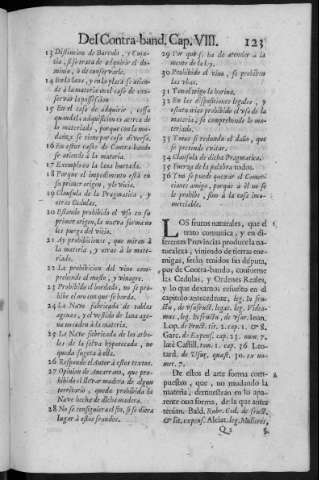 Del Contra-band. Cap. VIII. 123
13 Distincion de Bartulo, y
la, si se trata de adquirir el do-
minio, ò de conservarle.
14 En la lana, y en la plata se atien-
de à la materia en el caso de con-
servar la possession.
15 En el caso de adquirir, cessa
quando la adquisicion es acerca de
lo materiado, porque con la mu-
dança se tiene por cosa diversa.
16 En estos casos de Contra-bando
se atiende à la materia.
17 Exemplo en la lana hurtada.
18 Porque el impedimento està en
su primer origen, y le vicia.
19 Clausula de la Pragmatica, y
otras Cedulas.
20 Estando prohibido el uso en su
primer origen, la nueva forma no
los purga del vicio.
21 Ay prohibiciones, que miran à
la materia, y otras à lo mate-
riado.
22 La prohibicion del vino com-
prehende al mosto, y vinagre.
23 Prohibido el bordado, no se pro-
hibe el oro con que se borda.
24 La Nave fabricada de tablas
agenas, y el vestido de lana age-
na no ceden à la materia.
25 La Nave fabricada de los arbo-
les de la selva hypotecada, no
queda sugeta à ella.
26 Responde el Autor à estos textos.
27 Opinion de Ancarrano, que pro-
hibido el llevar madera de algun
territorio, queda prohibida la
Nave hecha de dicha madera.
28 No se conseguiria el fin, si se diera
lugar à estos fraudes.
29 Por què se ha de atender à la
mente de la Ley.
30 Prohibido el vino, se prohiben
las ubas.
31 Y en el trigo la harina.
32 En las disposiciones legales, y
estatutarias prohibido el uso de la
materia, se comprehende lo ma-
teriado.
33 Y no es redundar el daño, que
se pretende evitar.
34 Clausula de dicha Pragmatica.
35 Fuerça de la palabra todos.
36 Y no se puede quexar el Comer-
ciante amigo, porque à èl no se
le prohibe, sino à la cosa inco-
merciable.
LOS frutos naturales, que el
trato comunica, y en di-
ferentes Provincias produce la na-
turaleza, viniendo de tierras ene-
migas, se las tenidos sin disputa,
por de Contra-bando, conforme
las Cedulas, y Ordenes Reales,
y lo que dexamos resuelto en el
capitulo antecedente,
Lop. de fruct. tit. 2. cap. 1. & 8.
Garc. de Expens. cap. 23. num. 7.
latè Castill. tom. 1. cap. 36. Leo-
tard. de Usur. quæst. 30. ex nu-
mer. 7.
De estos el arte forma com-
puestos, que, no mudando la
materia, demuestran en lo apa-
rente otra forma, de la que antes
tenian. Bald. Rubr. Cod. de fruct.
& lit. expens. Alciat. leg. Mulieres,
Q 2 §.